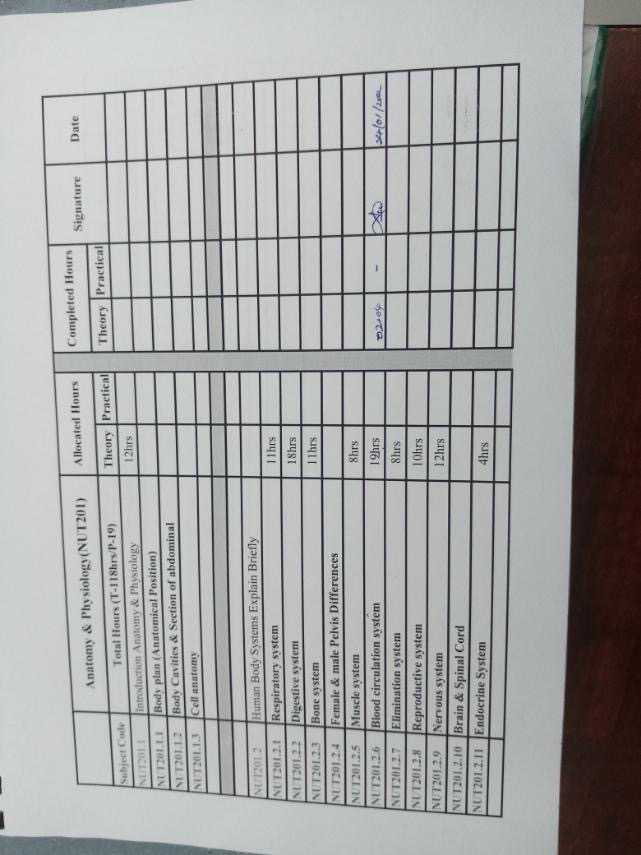 Anatomy & Physiology(NUT201) Allocated Hours Completed Hours Signature Date
Subject Code Total Hours (T-118hrs/P-19) Theory Practical Theory Practical
NUT201.1 Introduction Anatomy & Physiology 12hrs
NUT201.1.1 Body plan (Anatomical Position)
NUT201.1.2 Body Cavities & Section of abdominal
NUT201.1.3 Cell anatomy
NUT201.2 Human Body Systems Explain Briefly
NUT201.2.1 Respiratory system 11hrs
NUT201.2.2 Digestive system 18hrs
NUT201.2.3 Bone system 11hrs
NUT201.2.4 Female & male Pelvis Differences
NUT201.2.5 Muscle system 8hrs
NUT201.2.6 Blood circulation system 19hrs -
NUT201.2.7 Elimination system 8hrs
NUT201.2.8 Reproductive system 10hrs
NUT201.2.9 Nervous system 12hrs
NUT201.2.10 Brain & Spinal Cord
NUT201.2.11 Endocrine System 4hrs